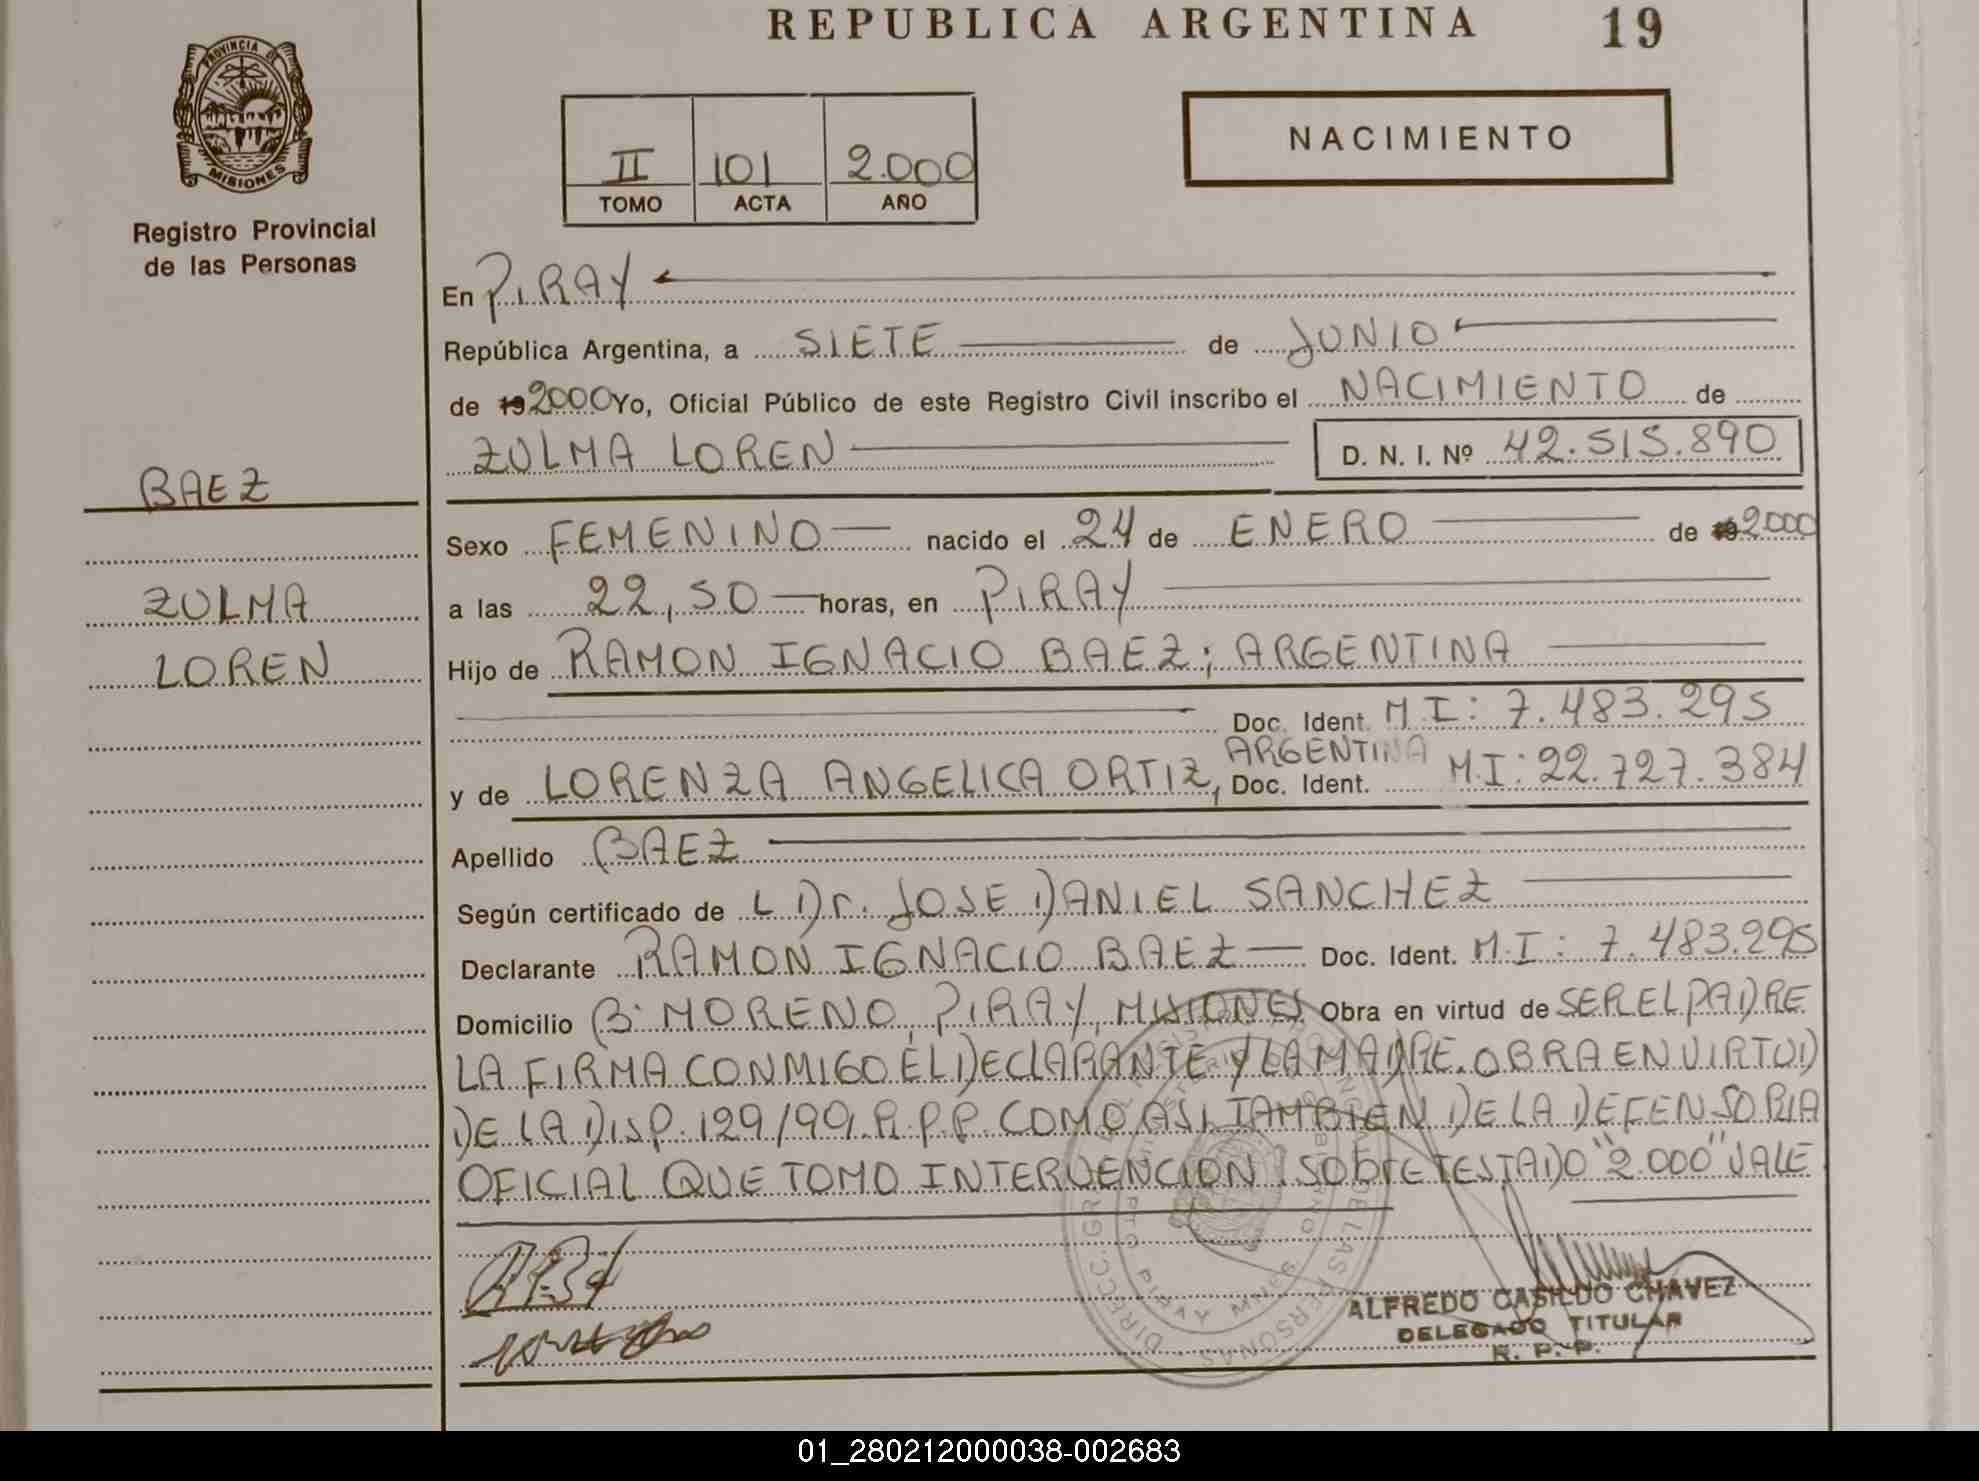 REPUBLICA ARGENTINA 19
PROVINCIA DE
MISIONES
Registro Provincial
de las Personas
II 101 2.000
TOMO ACTA AÑO
NACIMIENTO
En PIRAY
República Argentina, a SIETE de JUNIO
de 19 2000 Yo, Oficial Público de este Registro Civil inscribo el NACIMIENTO de
ZULMA LOREN D. N. I. Nº 42.515.890
BAEZ
ZULMA
LOREN
Sexo FEMENINO nacido el 24 de ENERO de 19 2.000
a las 22,50 horas, en PIRAY
Hijo de RAMON IGNACIO BAEZ; ARGENTINA
Doc. Ident. M.I: 7.483.295
ARGENTINA
y de LORENZA ANGELICA ORTIZ, Doc. Ident. M.I: 22.727.384
Apellido BAEZ
Según certificado de L Dr. JOSE DANIEL SANCHEZ
Declarante RAMON IGNACIO BAEZ Doc. Ident. M.I: 7.483.295
Domicilio Bº MORENO, PIRAY, MISIONES Obra en virtud de SER EL PADRE
LA FIRMA CONMIGO EL DECLARANTE Y LA MADRE. OBRA EN VIRTUD
DE LA DISP. 129/99. R.P.P. COMO ASI TAMBIEN DE LA DEFENSORIA
OFICIAL QUE TOMO INTERVENCION SOBRETESTADO "2.000" VALE
ALFREDO CASILDO CHAVEZ
DELEGADO TITULAR
R. P. P.
01_280212000038-002683